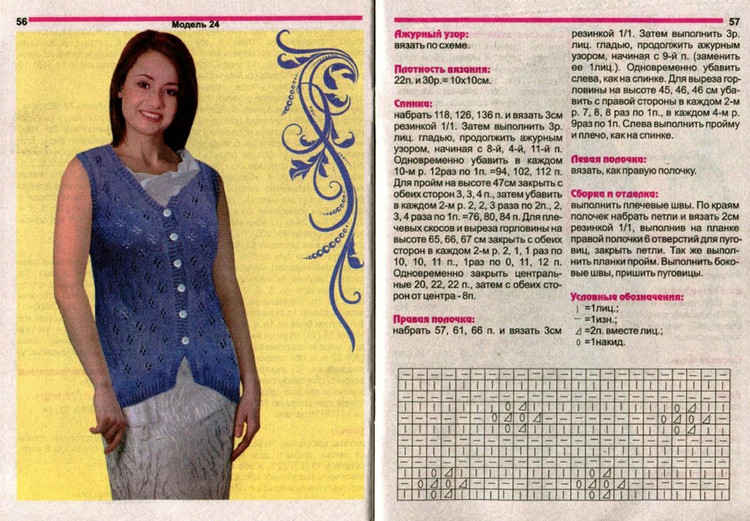 56
Модель 24
57
Ажурный узор:
вязать по схеме.
Плотность вязания:
22п. и 30р.= 10х10см.
Спинка:
набрать 118, 126, 136 п. и вязать 3см
резинкой 1/1. Затем выполнить 3р.
лиц. гладью, продолжить ажурным
узором, начиная с 8-й, 4-й, 11-й п.
Одновременно убавить в каждом
10-м р. 12раз по 1п. =94, 102, 112 п.
Для пройм на высоте 47см закрыть с
обеих сторон 3, 3, 4 п., затем убавить
в каждом 2-м р. 2, 2, 3 раза по 2п., 2,
3, 4 раза по 1п. =76, 80, 84 п. Для пле-
чевых скосов и выреза горловины на
высоте 65, 66, 67 см закрыть с обеих
сторон в каждом 2-м р. 2, 1, 1 раз по
10, 10, 11 п., 1раз по 0, 11, 12 п.
Одновременно закрыть централь-
ные 20, 22, 22 п., затем с обеих сто-
рон от центра - 8п.
Правая полочка:
набрать 57, 61, 66 п. и вязать 3см
резинкой 1/1. Затем выполнить 3р.
лиц. гладью, продолжить ажурным
узором, начиная с 9-й п. (заменить
ее 1лиц.). Одновременно убавить
слева, как на спинке. Для выреза гор-
ловины на высоте 45, 46, 46 см уба-
вить с правой стороны в каждом 2-м
р. 7, 8, 8 раз по 1п., в каждом 4-м р.
9раз по 1п. Слева выполнить пройму
и плечо, как на спинке.
Левая полочка:
вязать, как правую полочку.
Сборка и отделка:
выполнить плечевые швы. По краям
полочек набрать петли и вязать 2см
резинкой 1/1, выполнив на планке
правой полочки 6 отверстий для пуго-
виц, закрыть петли. Так же выпол-
нить планки пройм. Выполнить боко-
вые швы, пришить пуговицы.
Условные обозначения:
| =1лиц.;
– =1изн.;
⊿ =2п. вместе лиц.;
о =1накид.